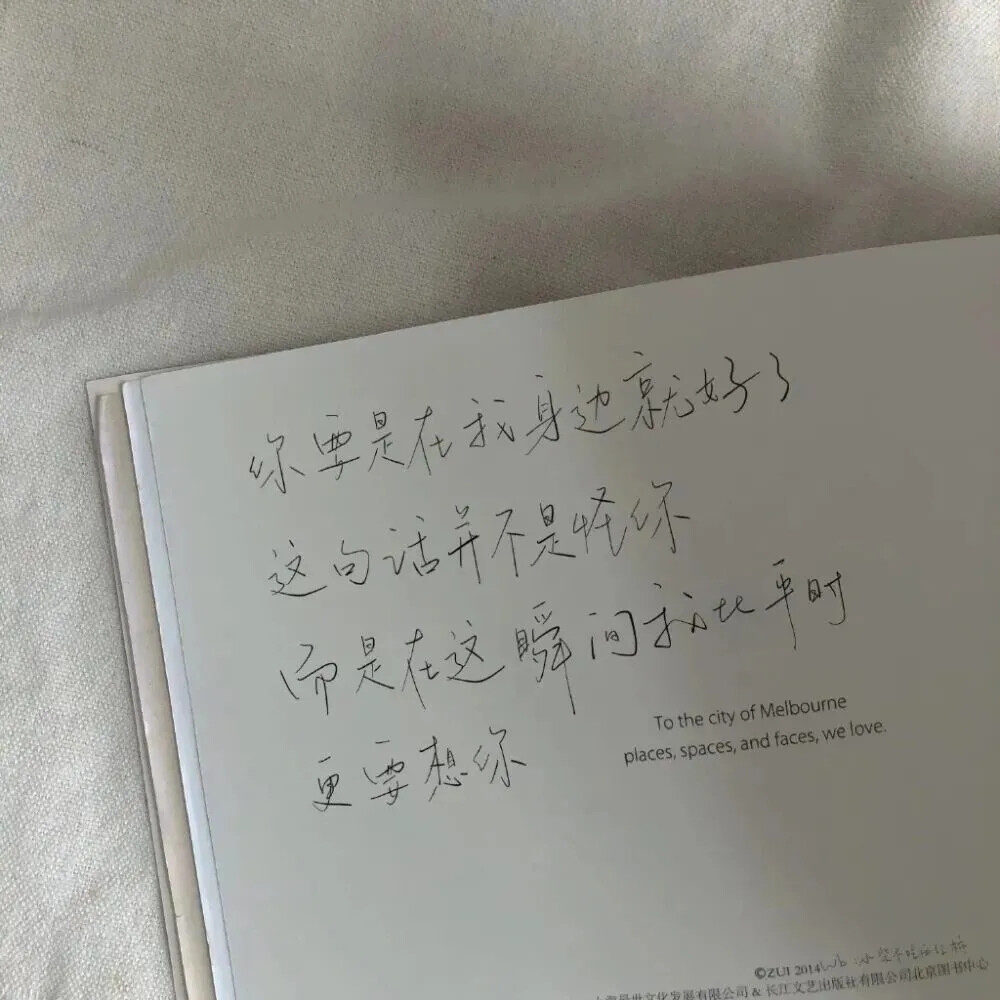 你要是在我身边就好了
这句话并不是怪你
而是在这瞬间我比平时
更要想你
To the city of Melbourne
places, spaces, and faces, we love.
©ZUI 2014
文化发展有限公司 & 长江文艺出版社有限公司北京图书中心